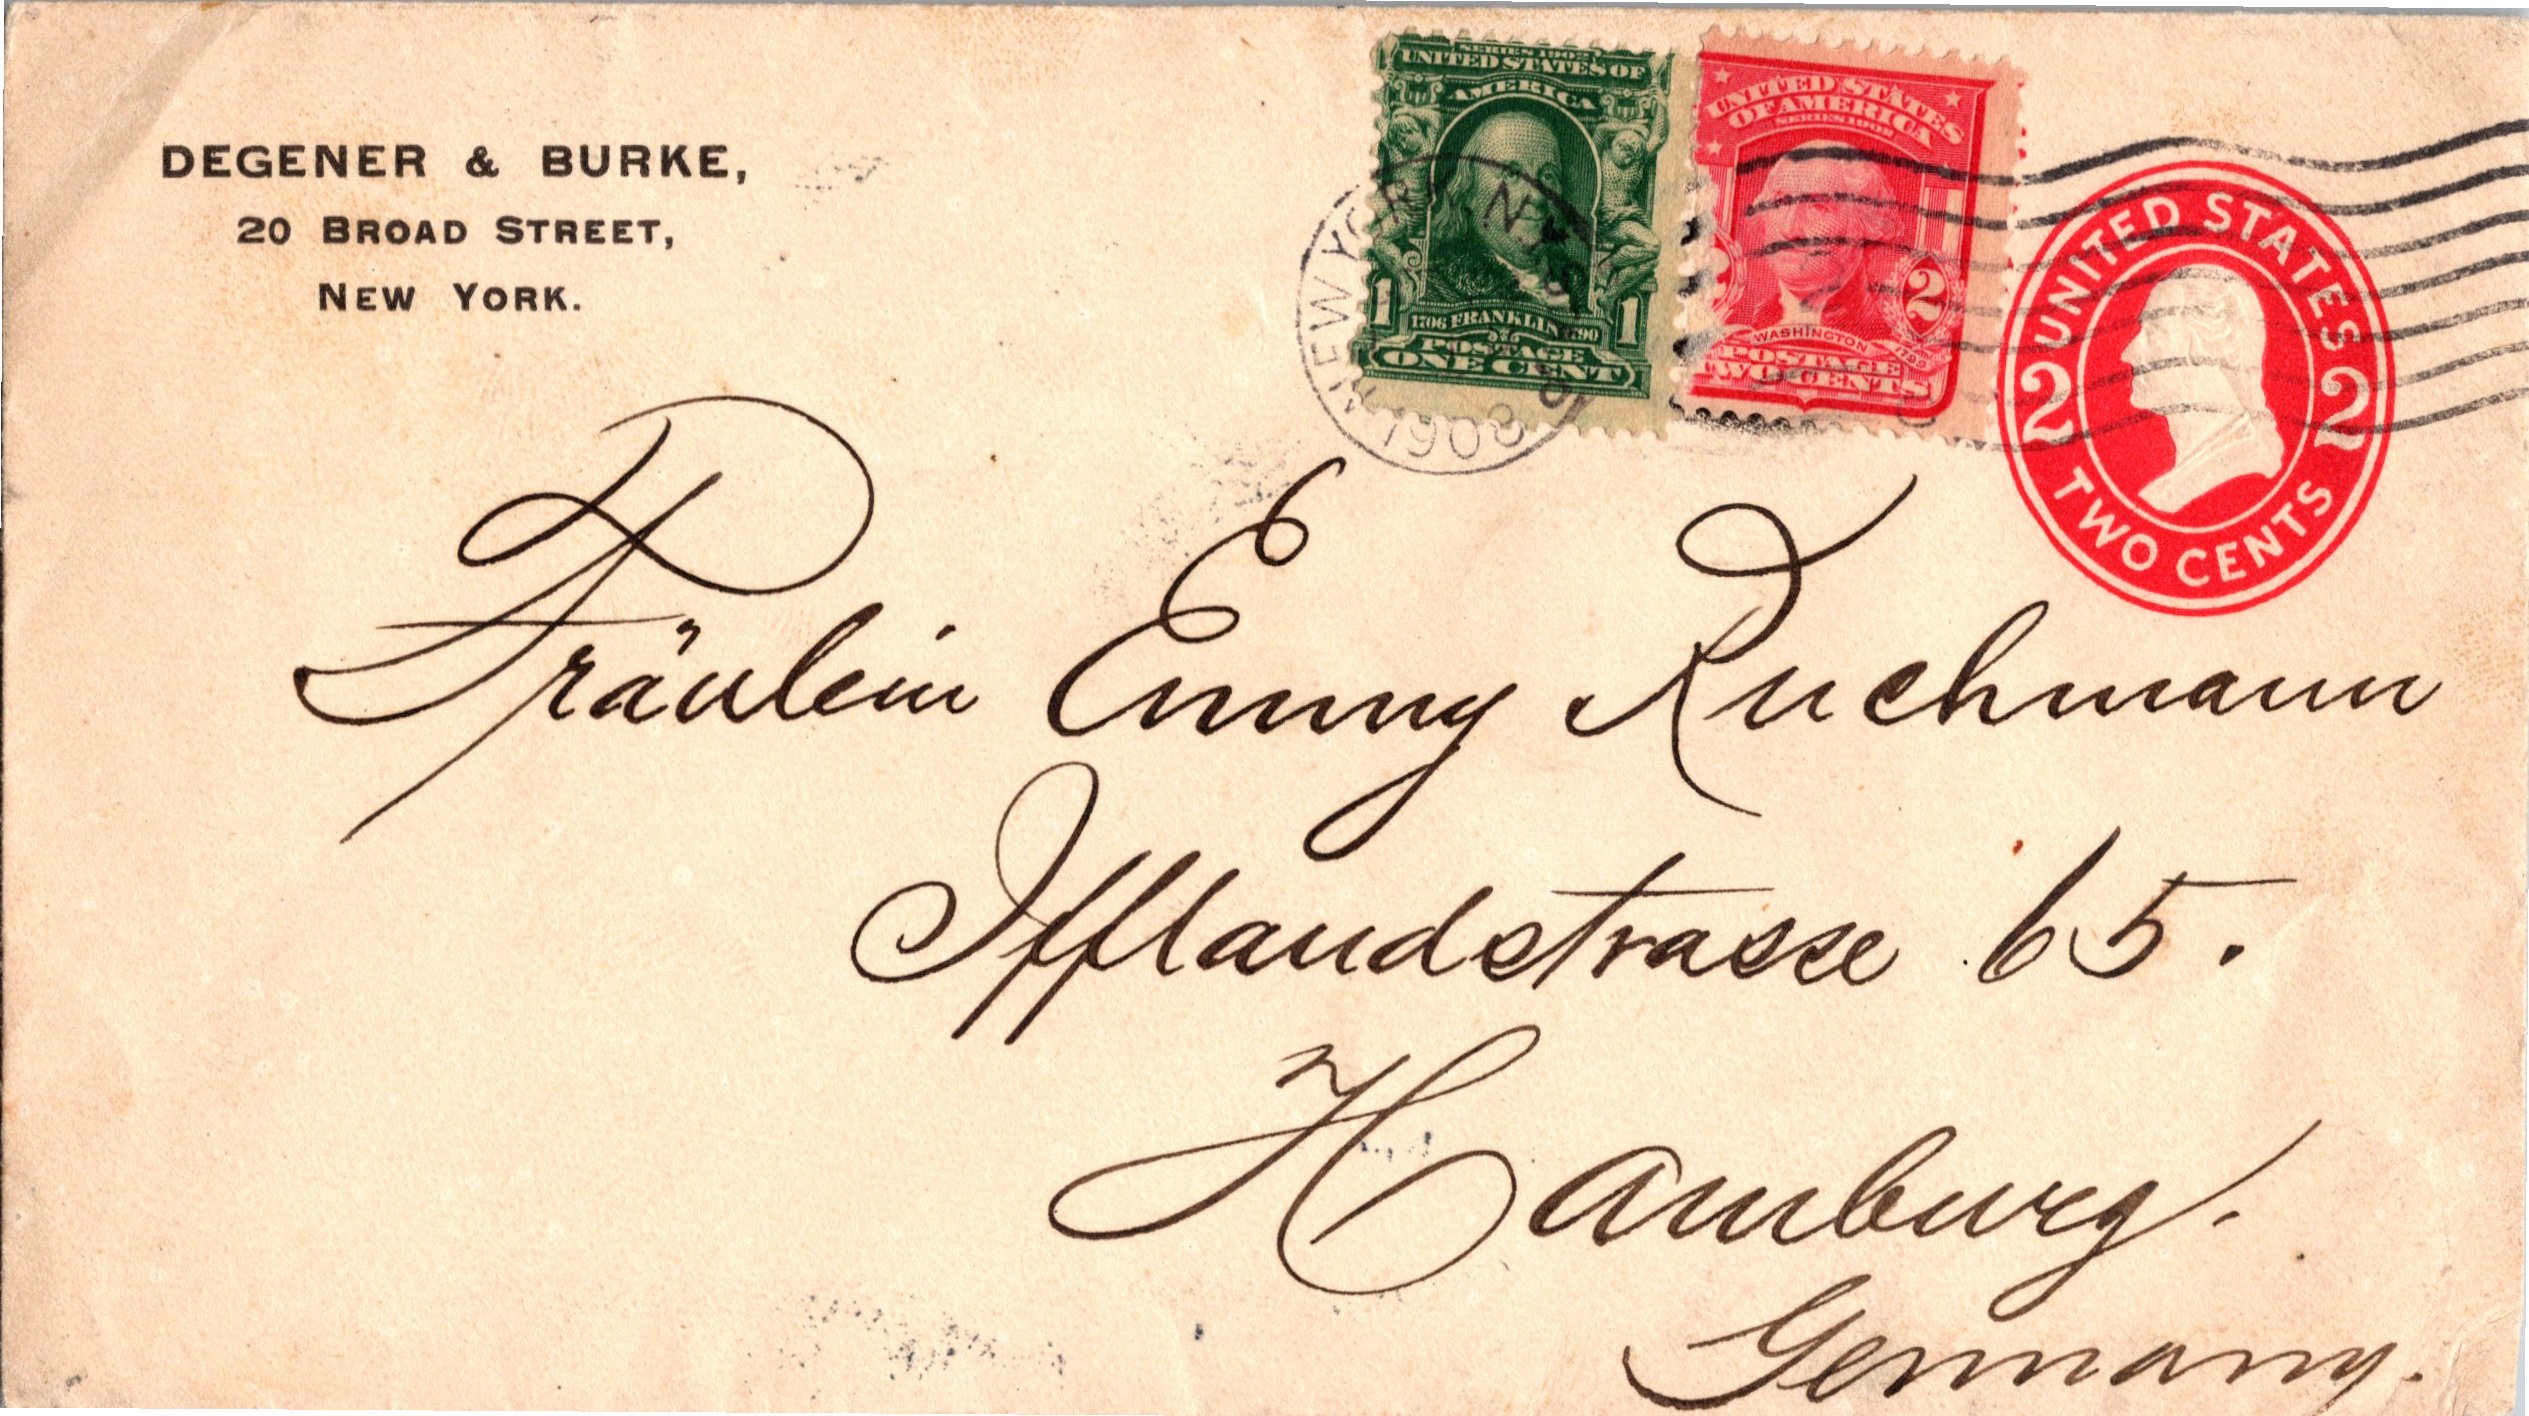 DEGENER & BURKE,
20 BROAD STREET,
NEW YORK.
SERIES 1902
UNITED STATES OF
AMERICA
1 1
1706 FRANKLIN 1790
POSTAGE
ONE CENT
UNITED STATES
OF AMERICA
SERIES 1902
2
WASHINGTON
1799
POSTAGE
TWO CENTS
UNITED STATES
2 2
TWO CENTS
NEW YORK, N.Y.
1908
Fräulein Emmy Ruchmann
Ifflandstrasse 65.
Hamburg.
Germany.